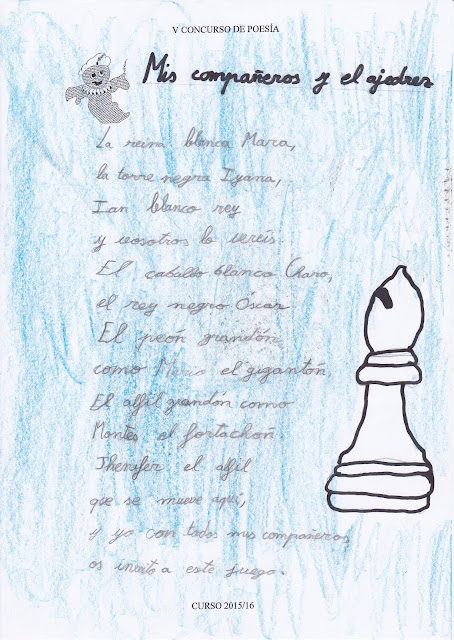 V CONCURSO DE POESÍA
Mis compañeros y el ajedrez
La reina blanca Mara,
la torre negra Iyana,
Ian blanco rey
y vosotros lo vereis.
El caballo blanco Charo,
el rey negro Óscar
El peoñ grandón
como Mario el gigantoñ
El alfil grandón como
Montes el fortachoñ.
Jhenifer el alfil
que se mueve aquí,
y yo con todos mis compañeros
os invito a este juego.
CURSO 2015/16